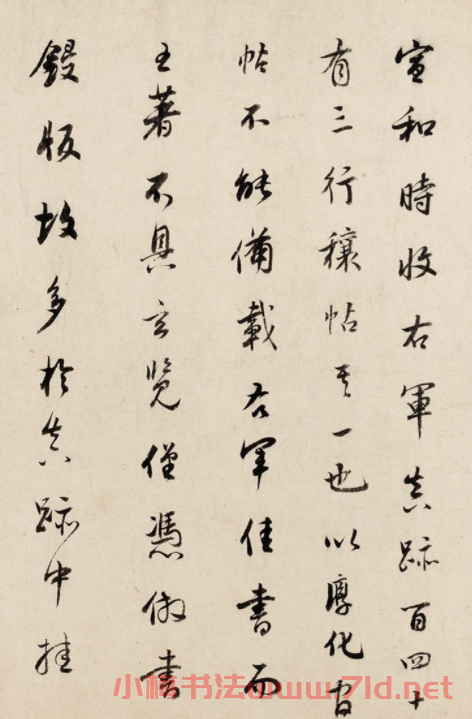 宣和時收右軍真跡百四十
有三行穰帖其一也以淳化官
帖不能備載右軍佳書而
王著不具玄覽僅憑倣書
鋟版故多於真跡中挂
小楷书法www.7ld.net